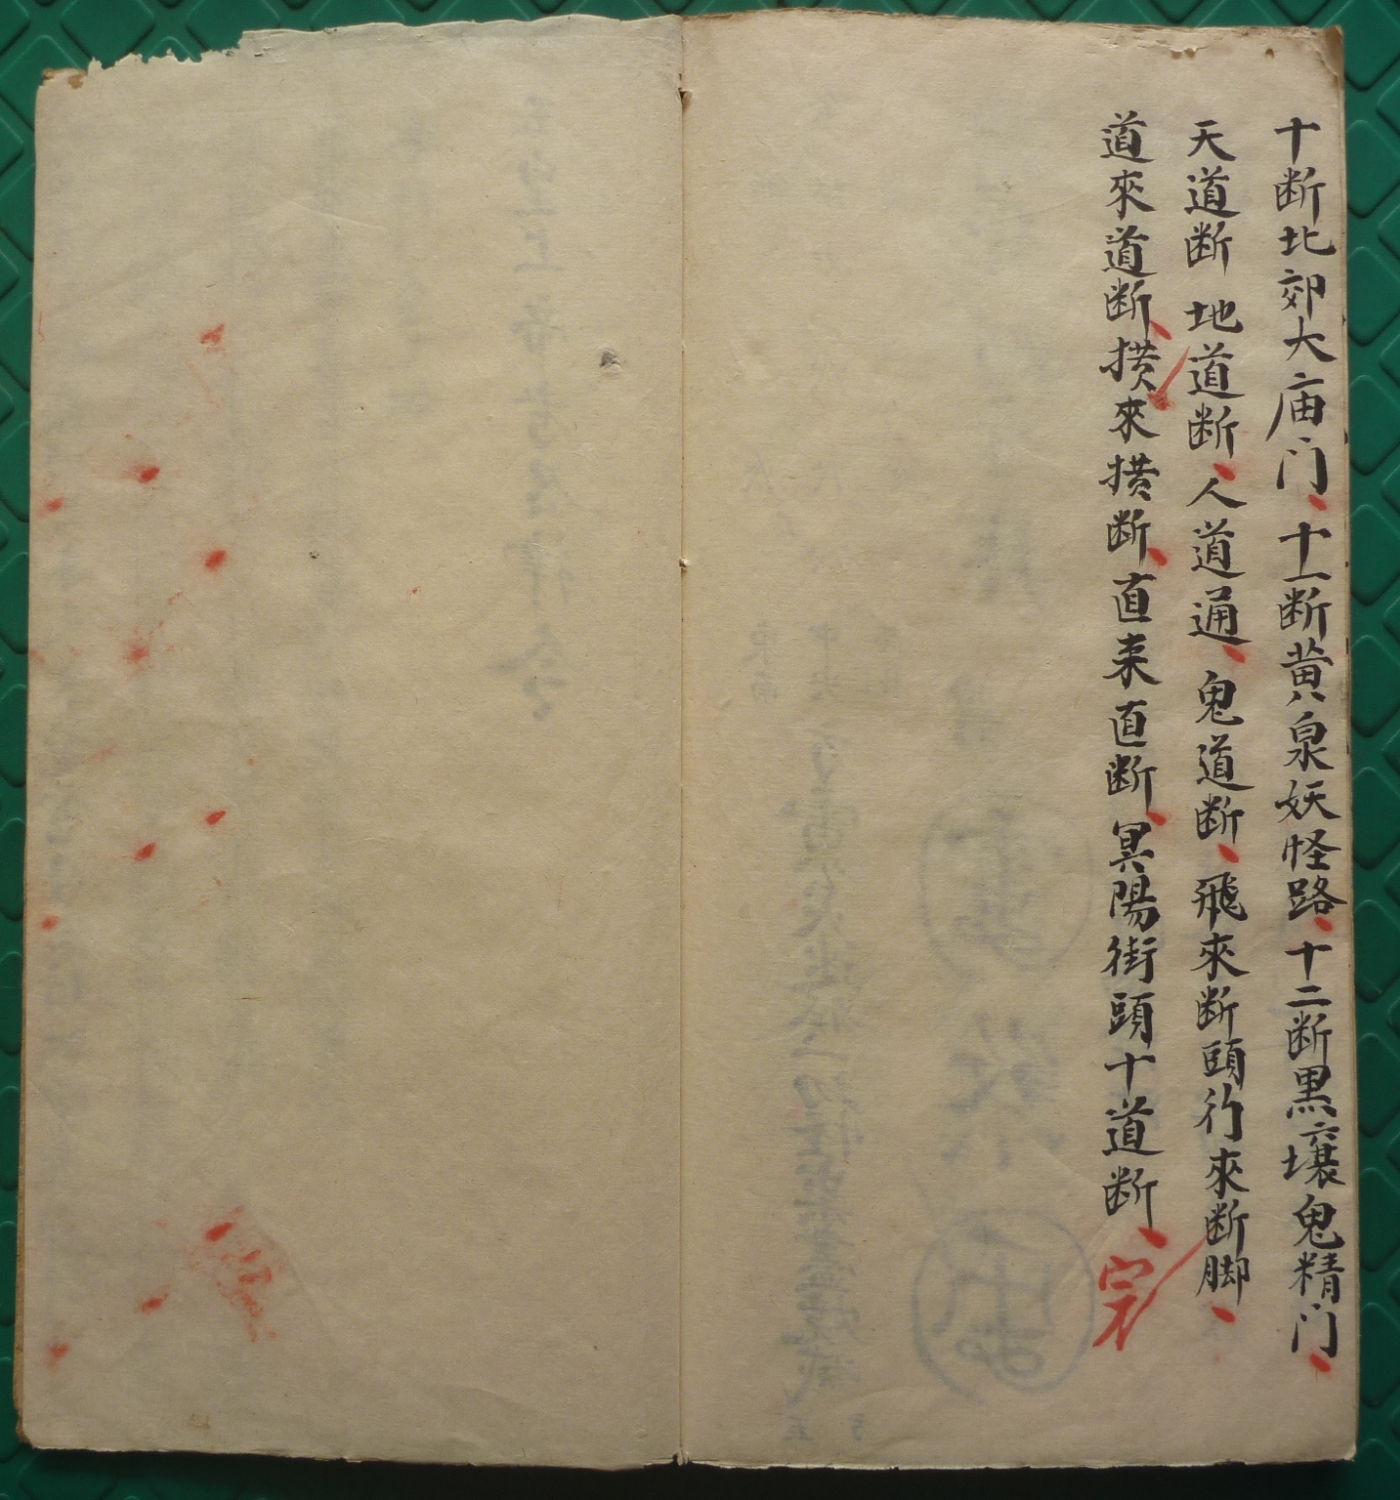 十断北郊大庙门、十一断黄泉妖怪路、十二断黑壤鬼精门、
天道断 地道断、人道通、鬼道断、飛來断頭行來断脚、
道來道断、撗來撗断、直来直断、冥陽街頭十道断、完